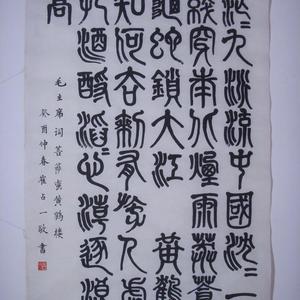 茫〻九派流中國沈〻一
綫穿南北煙雨莽蒼〻
龜蛇鎖大江 黃鶴
知何去剩有游人處
把酒酹滔〻心潮逐浪
高
毛主席詞菩薩蠻黃鶴樓
癸酉仲春崔占一敬書